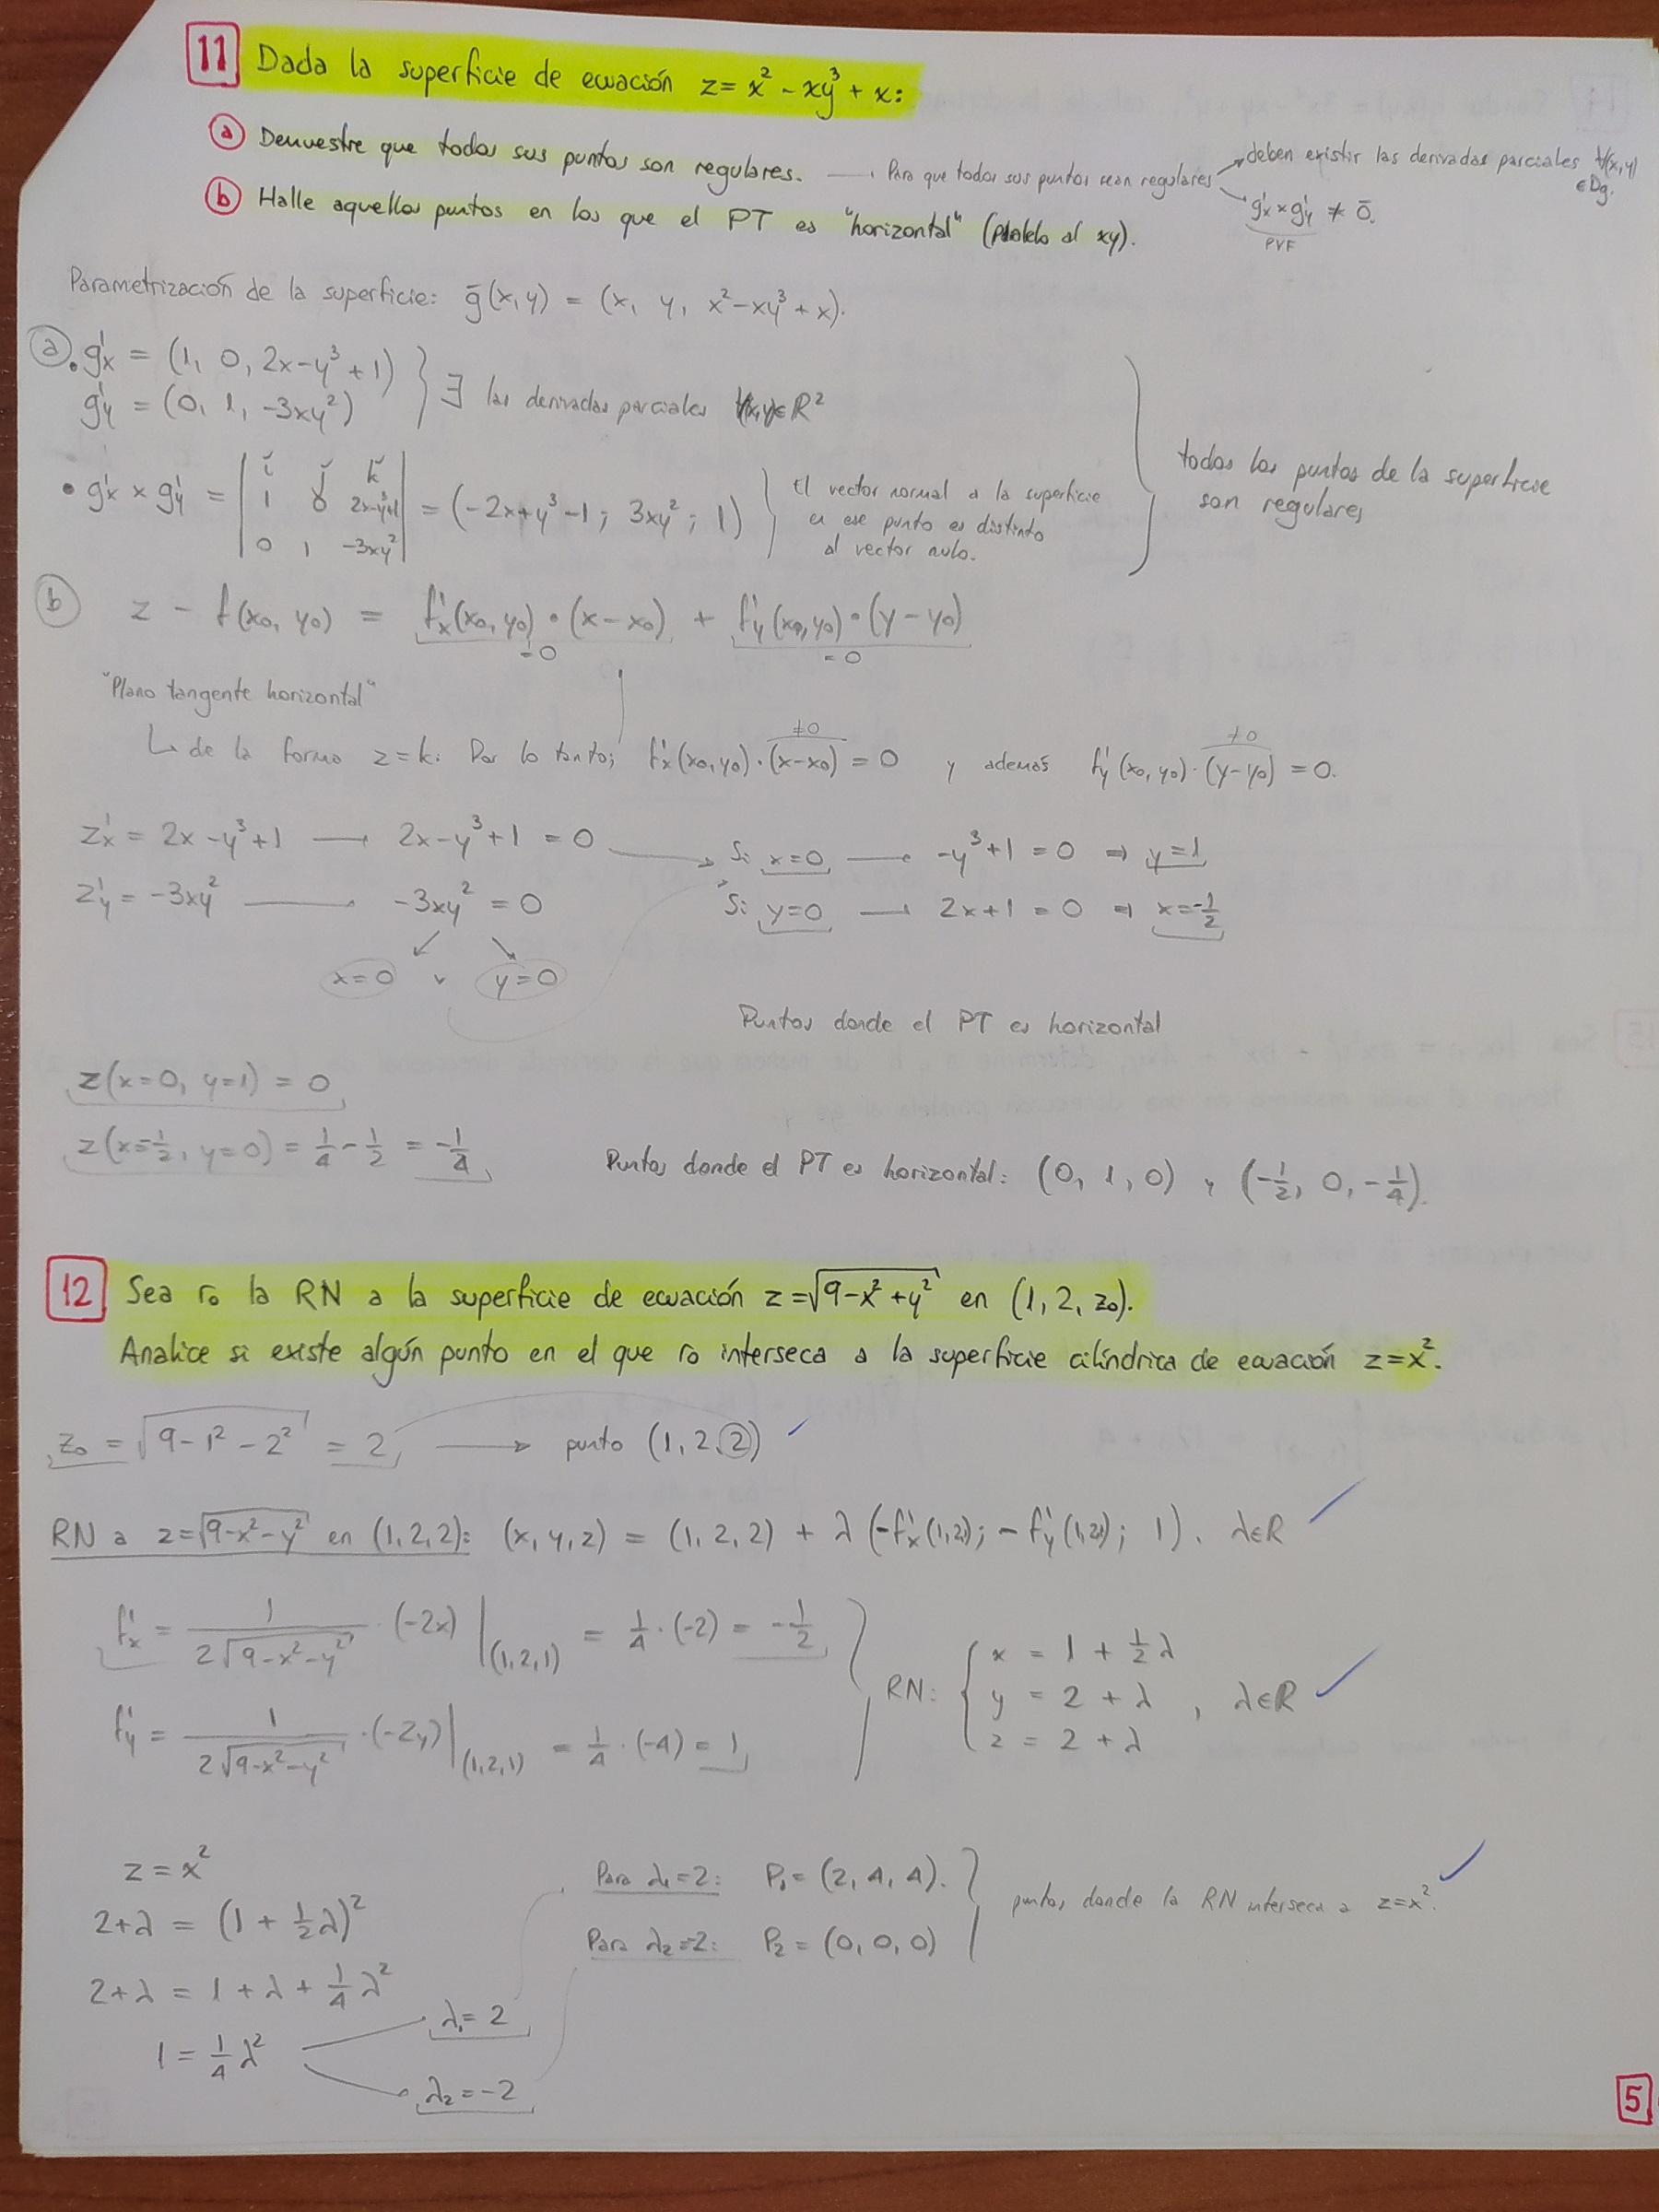 11 Dada la superficie de ecuación z = x² - xy³ + x:
a Demuestre que todos sus puntos son regulares. → Para que todos sus puntos sean regulares
deben existir las derivadas parciales ∀(x,y) ∈ Dg.
g'x × g'y ≠ 0̄.
PVF
b Halle aquellos puntos en los que el PT es "horizontal" (paralelo al xy).
Parametrización de la superficie: ḡ(x,y) = (x, y, x²-xy³+x).
a • g'x = (1, 0, 2x-y³+1)
g'y = (0, 1, -3xy²) } ∃ las derivadas parciales ∀(x,y)∈R²
• g'x × g'y = | i j k | 1 0 2x-y³+1 | 0 1 -3xy² | = (-2x+y³-1; 3xy²; 1)
El vector normal a la superficie
en ese punto es distinto
al vector nulo.
todos los puntos de la superficie
son regulares
b z - f(x0, y0) = f'x(x0, y0)·(x-x0) + f'y(x0,y0)·(y-y0)
=0 =0
"Plano tangente horizontal"
↳ de la forma z=k. Por lo tanto; f'x(x0,y0)·(x-x0) = 0 y además f'y(x0,y0)·(y-y0) = 0.
≠0 ≠0
z'x = 2x-y³+1 → 2x-y³+1 = 0 → Si x=0 → -y³+1 = 0 ⇒ y=1
z'y = -3xy² → -3xy² = 0 Si y=0 → 2x+1 = 0 ⇒ x=-1/2
x=0 v y=0
Puntos donde el PT es horizontal
z(x=0, y=1) = 0
z(x=-1/2, y=0) = 1/4 - 1/2 = -1/4
Puntos donde el PT es horizontal: (0, 1, 0) y (-1/2, 0, -1/4).
12 Sea r0 la RN a la superficie de ecuación z=√(9-x²+y²) en (1, 2, z0).
Analice si existe algún punto en el que r0 interseca a la superficie cilíndrica de ecuación z=x².
z0 = √(9-1²-2²) = 2 → punto (1,2,2) ✓
RN a z=√(9-x²-y²) en (1,2,2): (x,y,z) = (1,2,2) + λ (-f'x(1,2); -f'y(1,2); 1). λ∈R ✓
f'x = 1/(2√(9-x²-y²)) · (-2x) |(1,2,1) = 1/4 · (-2) = -1/2
f'y = 1/(2√(9-x²-y²)) · (-2y) |(1,2,1) = 1/4 · (-4) = 1
RN: { x = 1 + 1/2 λ
y = 2 + λ , λ∈R ✓
z = 2 + λ
z = x²
2+λ = (1 + 1/2 λ)²
2+λ = 1 + λ + 1/4 λ²
1 = 1/4 λ²
λ1 = 2
λ2 = -2
Para λ1=2: P1 = (2, 4, 4).
Para λ2=-2: P2 = (0, 0, 0)
puntos donde la RN interseca a z=x². ✓
5